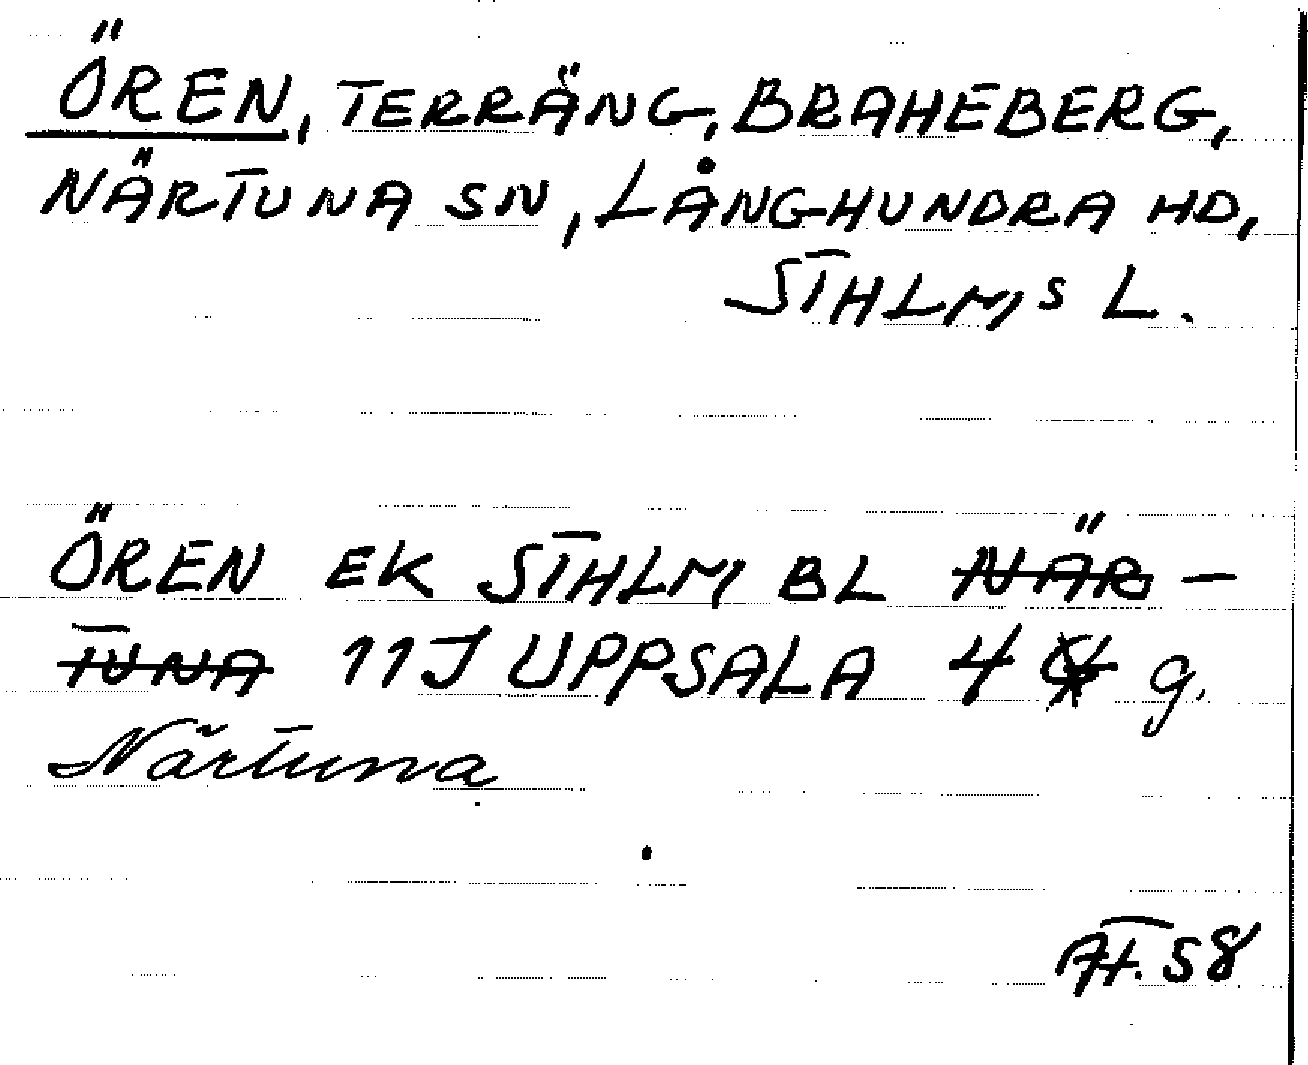 ÖREN, TERRÄNG, BRAHEBERG,
NÄRTUNA SN, LÅNGHUNDRA HD,
STHLMS L.
ÖREN EK STHLM BL NÄR-
TUNA 11J UPPSALA 4 g.
Närtuna
58